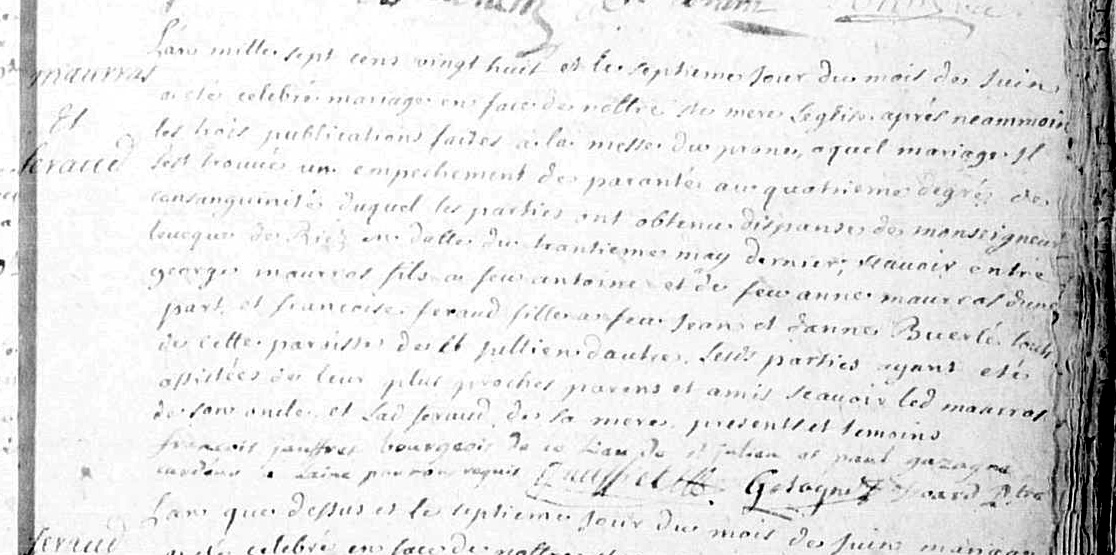 maurras
et
feraud
L'an mille sept cens vingt huit et le septieme jour du mois de Juin
a eté celebré mariage en face de nottre ste mere l'eglise apres neammoin
les trois publications faites a la messe du prone, aquel mariage Il
s'est trouvée un empechement de parantée au quatrieme degrés de
consanguinité duquel les parties ont obtenu dispanse de monseigneur
l'eveque de Riez en datte du trantieme may dernier, scavoir entre
george maurras fils a feu antoine et de feue anne maurras d'une
part, et francoise feraud fille a feu Jean et d'anne Buerlé touts
de cette paroisse de st jullien d'autre. Lesds parties ayant etés
assistées de leur plus proches parens et amis scavoir led maurras
de son oncle et lad feraud de sa mere, presents et temoins
francois jauffret bourgeois de ce lieu de st julien et paul gazagne
cardeur a laine par nous requis Gazagne ptre
L'an que dessus et le septieme jour du mois de Juin mariage
a eté celebré en face de
feraud